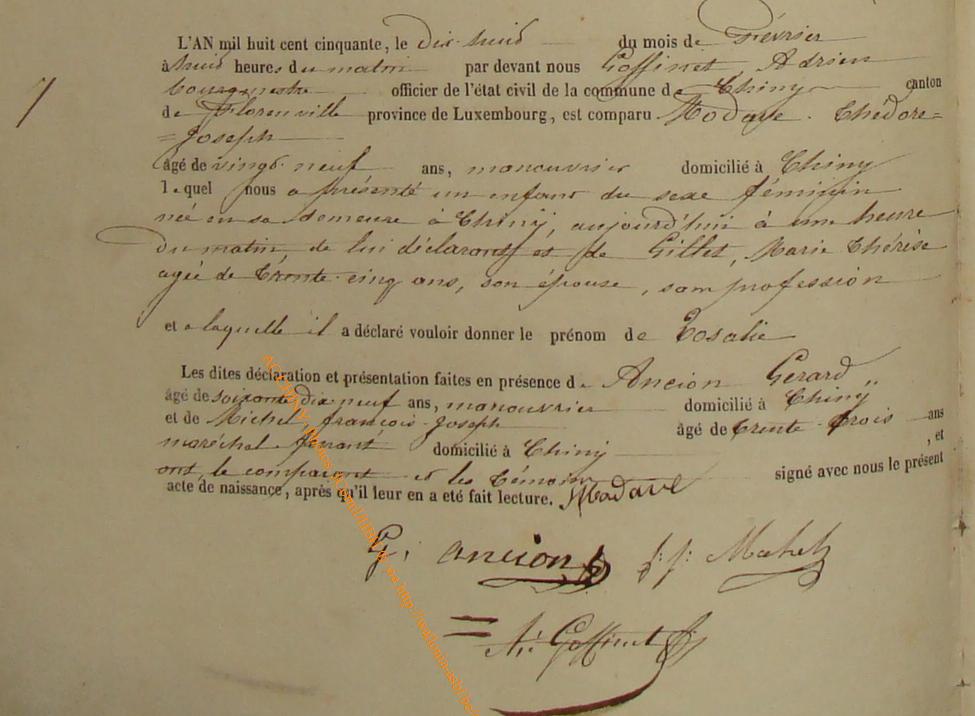 L'AN mil huit cent cinquante, le dix-huit du mois de Février
à huit heures du matin par devant nous Goffinet Adrien
bourgmestre officier de l'état civil de la commune de Chiny canton
de Florenville province de Luxembourg, est comparu Modave Théodore=
=Joseph
âgé de vingt-neuf ans, manouvrier domicilié à Chiny
lequel nous a présenté un enfant du sexe féminin
née en sa demeure à Chiny, aujourd'hui à une heure
du matin, de lui déclarant et de Gillet, Marie Thérèse
agée de trente-cinq ans, son épouse, sans profession
et a laquelle il a déclaré vouloir donner le prénom de Rosalie
Les dites déclaration et présentation faites en présence de Ancion Gerard,,
âgé de soixante dix neuf ans, manouvrier domicilié à Chiny
et de Michel françois-Joseph âgé de trente-trois ans
maréchal ferrant domicilié à Chiny , et
ont, le comparant et les témoins signé avec nous le présent
acte de naissance, après qu'il leur en a eté fait lecture. Modave
G. ancion f. j. Michel
= Ad Goffinet
7